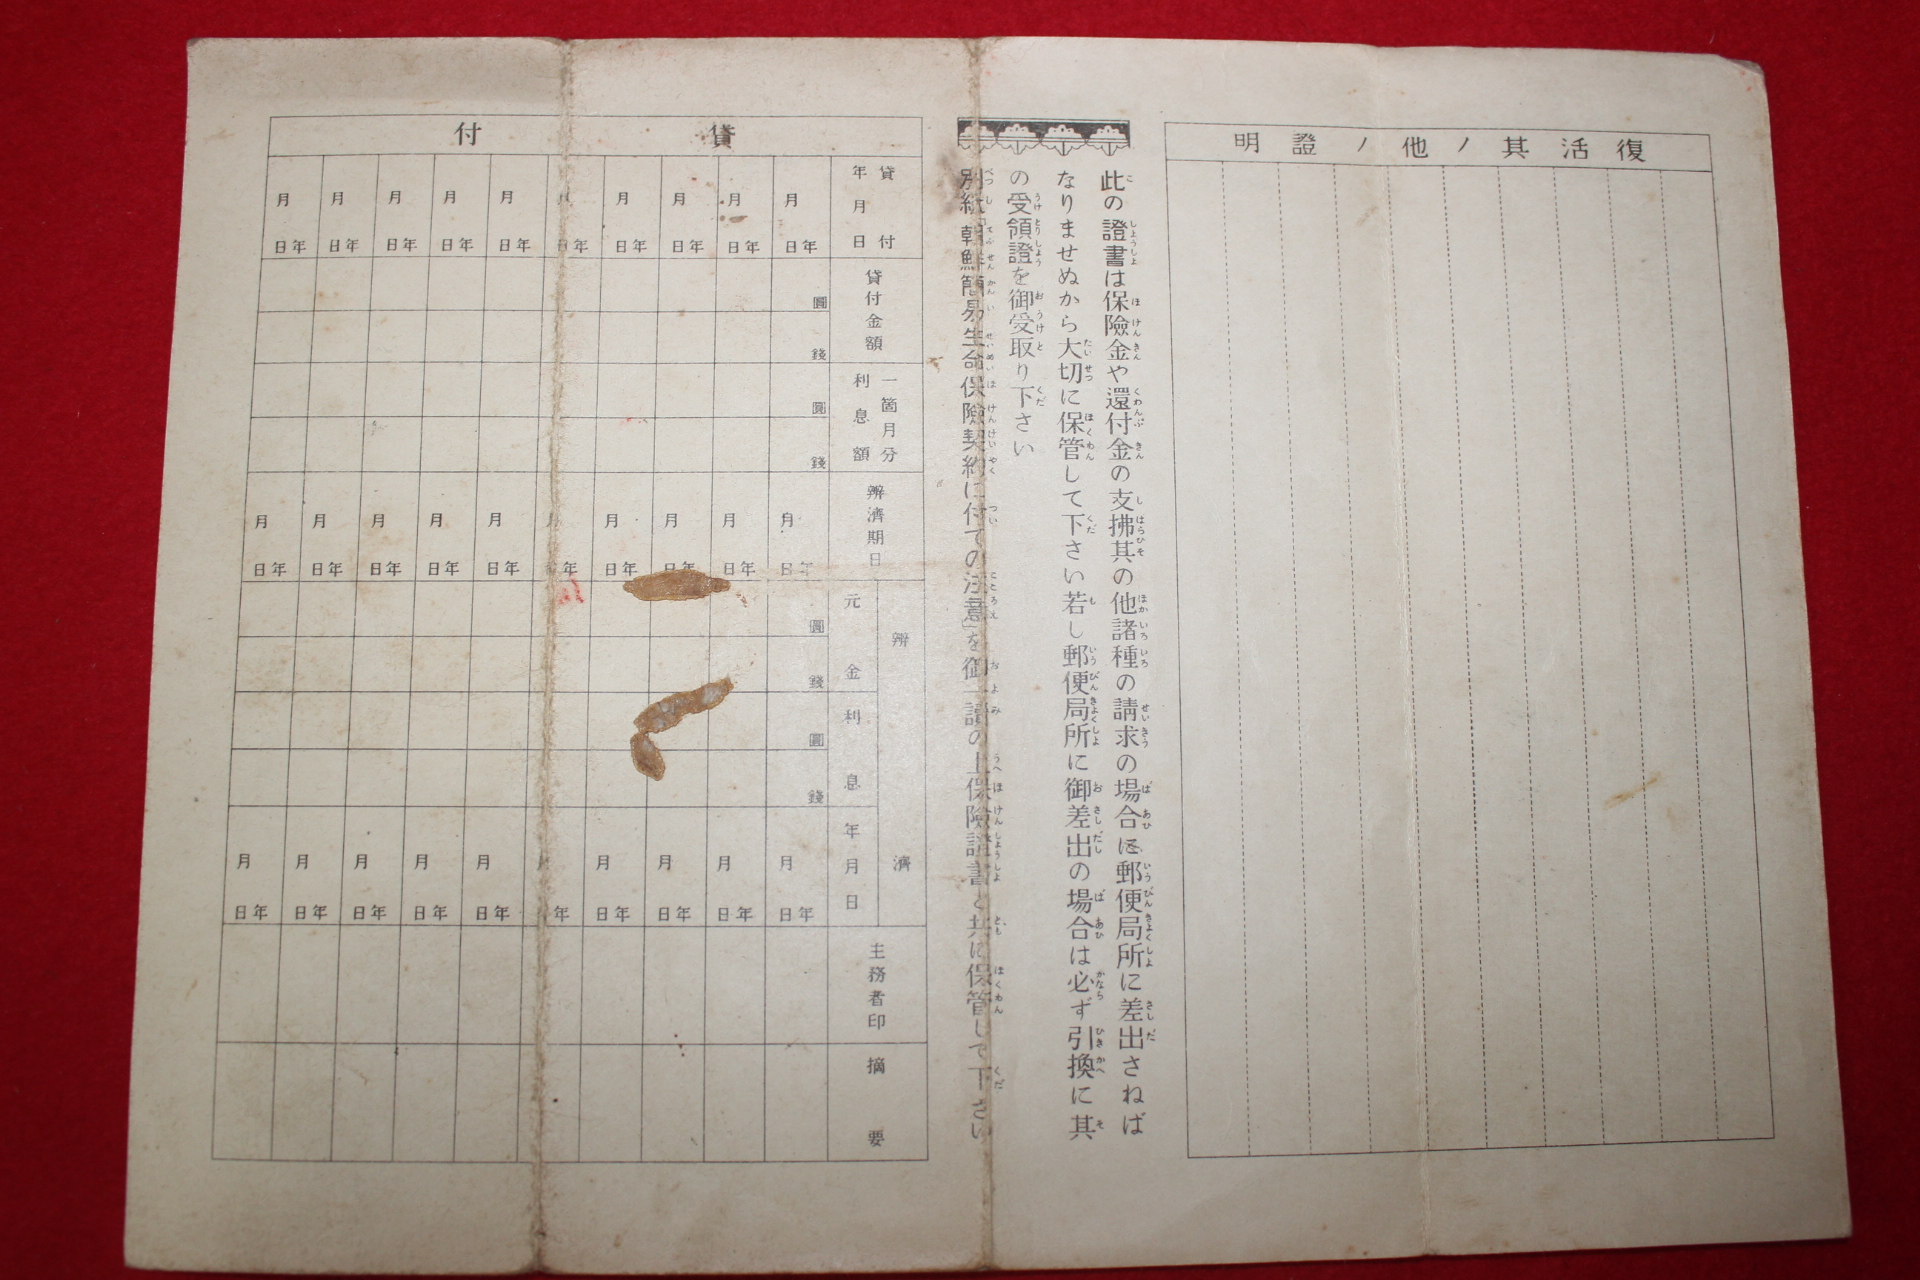 復活其ノ他ノ證明
此の證書は保險金や還付金の支拂其の他諸種の請求の場合に郵便局所に差出さねば
なりませぬから大切に保管して下さい若し郵便局所に御差出の場合は必ず引換に其
の受領證を御受取り下さい
別紙「朝鮮簡易生命保險契約に付ての注意」を御一讀の上保險證書と共に保管して下さい
貸付
貸付年月日
年月日 年月日 年月日 年月日 年月日 年月日 年月日 年月日 年月日
貸付金額
圓
錢
一箇月分利息額
圓
錢
辨濟期日
年月日 年月日 年月日 年月日 年月日 年月日 年月日 年月日 年月日 年月日
辨濟
元金
圓
錢
利息
圓
錢
年月日
年月日 年月日 年月日 年月日 年月日 年月日 年月日 年月日 年月日 年月日
主務者印
摘要